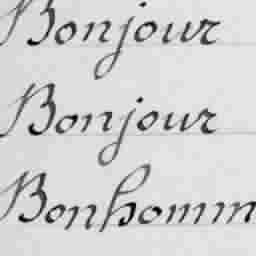 Bonjour
Bonjour
Bonhomm